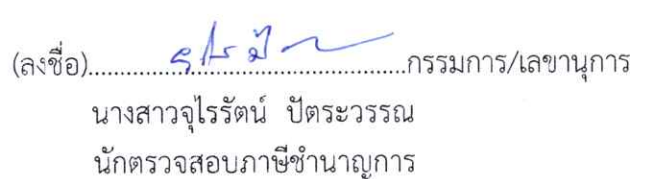 (ลงชื่อ)..........................................กรรมการ/เลขานุการ
นางสาวจุไรรัตน์ ปัตระวรรณ
นักตรวจสอบภาษีชำนาญการ